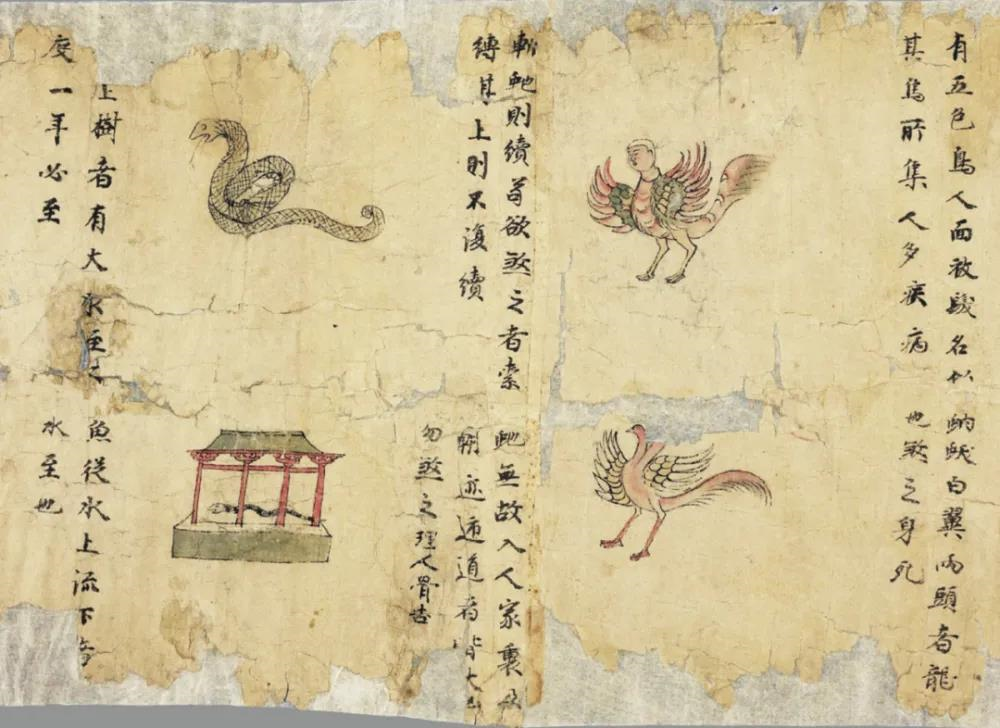 有五色鳥人面被髮名
其鳥所集人多疾病
白翼两頭者龍
也煞之身死
斬虵則續苟欲煞之者索
縛其上則不復續
虵無故入人家裏及
道者皆大
勿煞之理人骨吉
上樹者有大水至之
度一年必至
魚從水上流下者
水至也